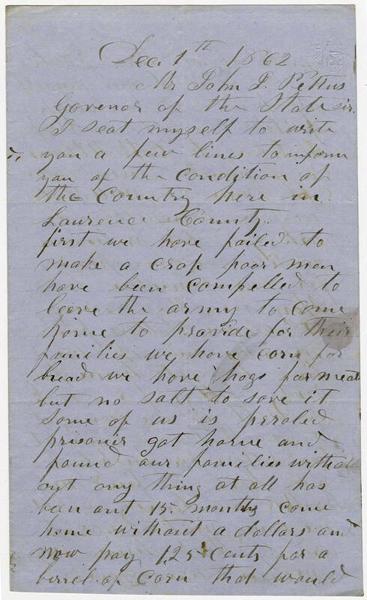 Dec 1th 1862
Mr John J. Pettus
Govenor of the State sir.
I seat myself to write
you a few lines to inform
you of the condition of
the Country here in
Lawrence County.
first we have failed to
make a crop poor men
have been compelled to
leave the army to come
home to provide for their
families we have corn for
bread we have hogs for meat
but no salt to save it
some of us is peroled
prisoners got home and
found our families without
out any thing at all has
been out 15 months come
home without a dollars and
now pay 125 cents for a
birrel of corn that would